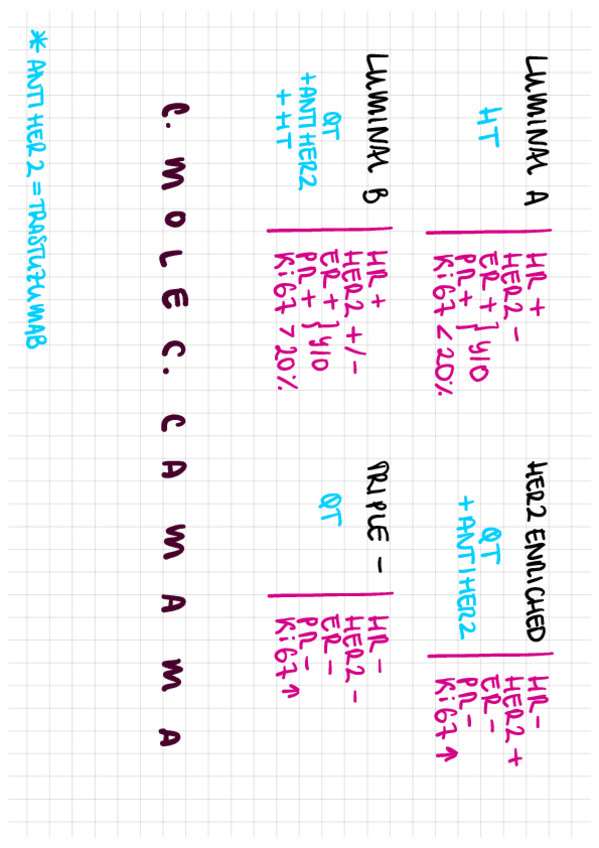 LUMINAL A
HT
HR +
HER2 -
ER + } y/o
PR +
Ki67 < 20%
HER2 ENRICHED
QT
+ ANTIHER2
HR -
HER2 +
ER -
PR -
Ki67 ↑
LUMINAL B
QT
+ANTIHER2
+ HT
HR +
HER2 +/-
ER + } y/o
PR +
Ki67 > 20%
TRIPLE -
QT
HR -
HER2 -
ER -
PR -
Ki67 ↑
C. MOLEC. CA MAMA
* ANTI HER2 = TRASTUZUMAB